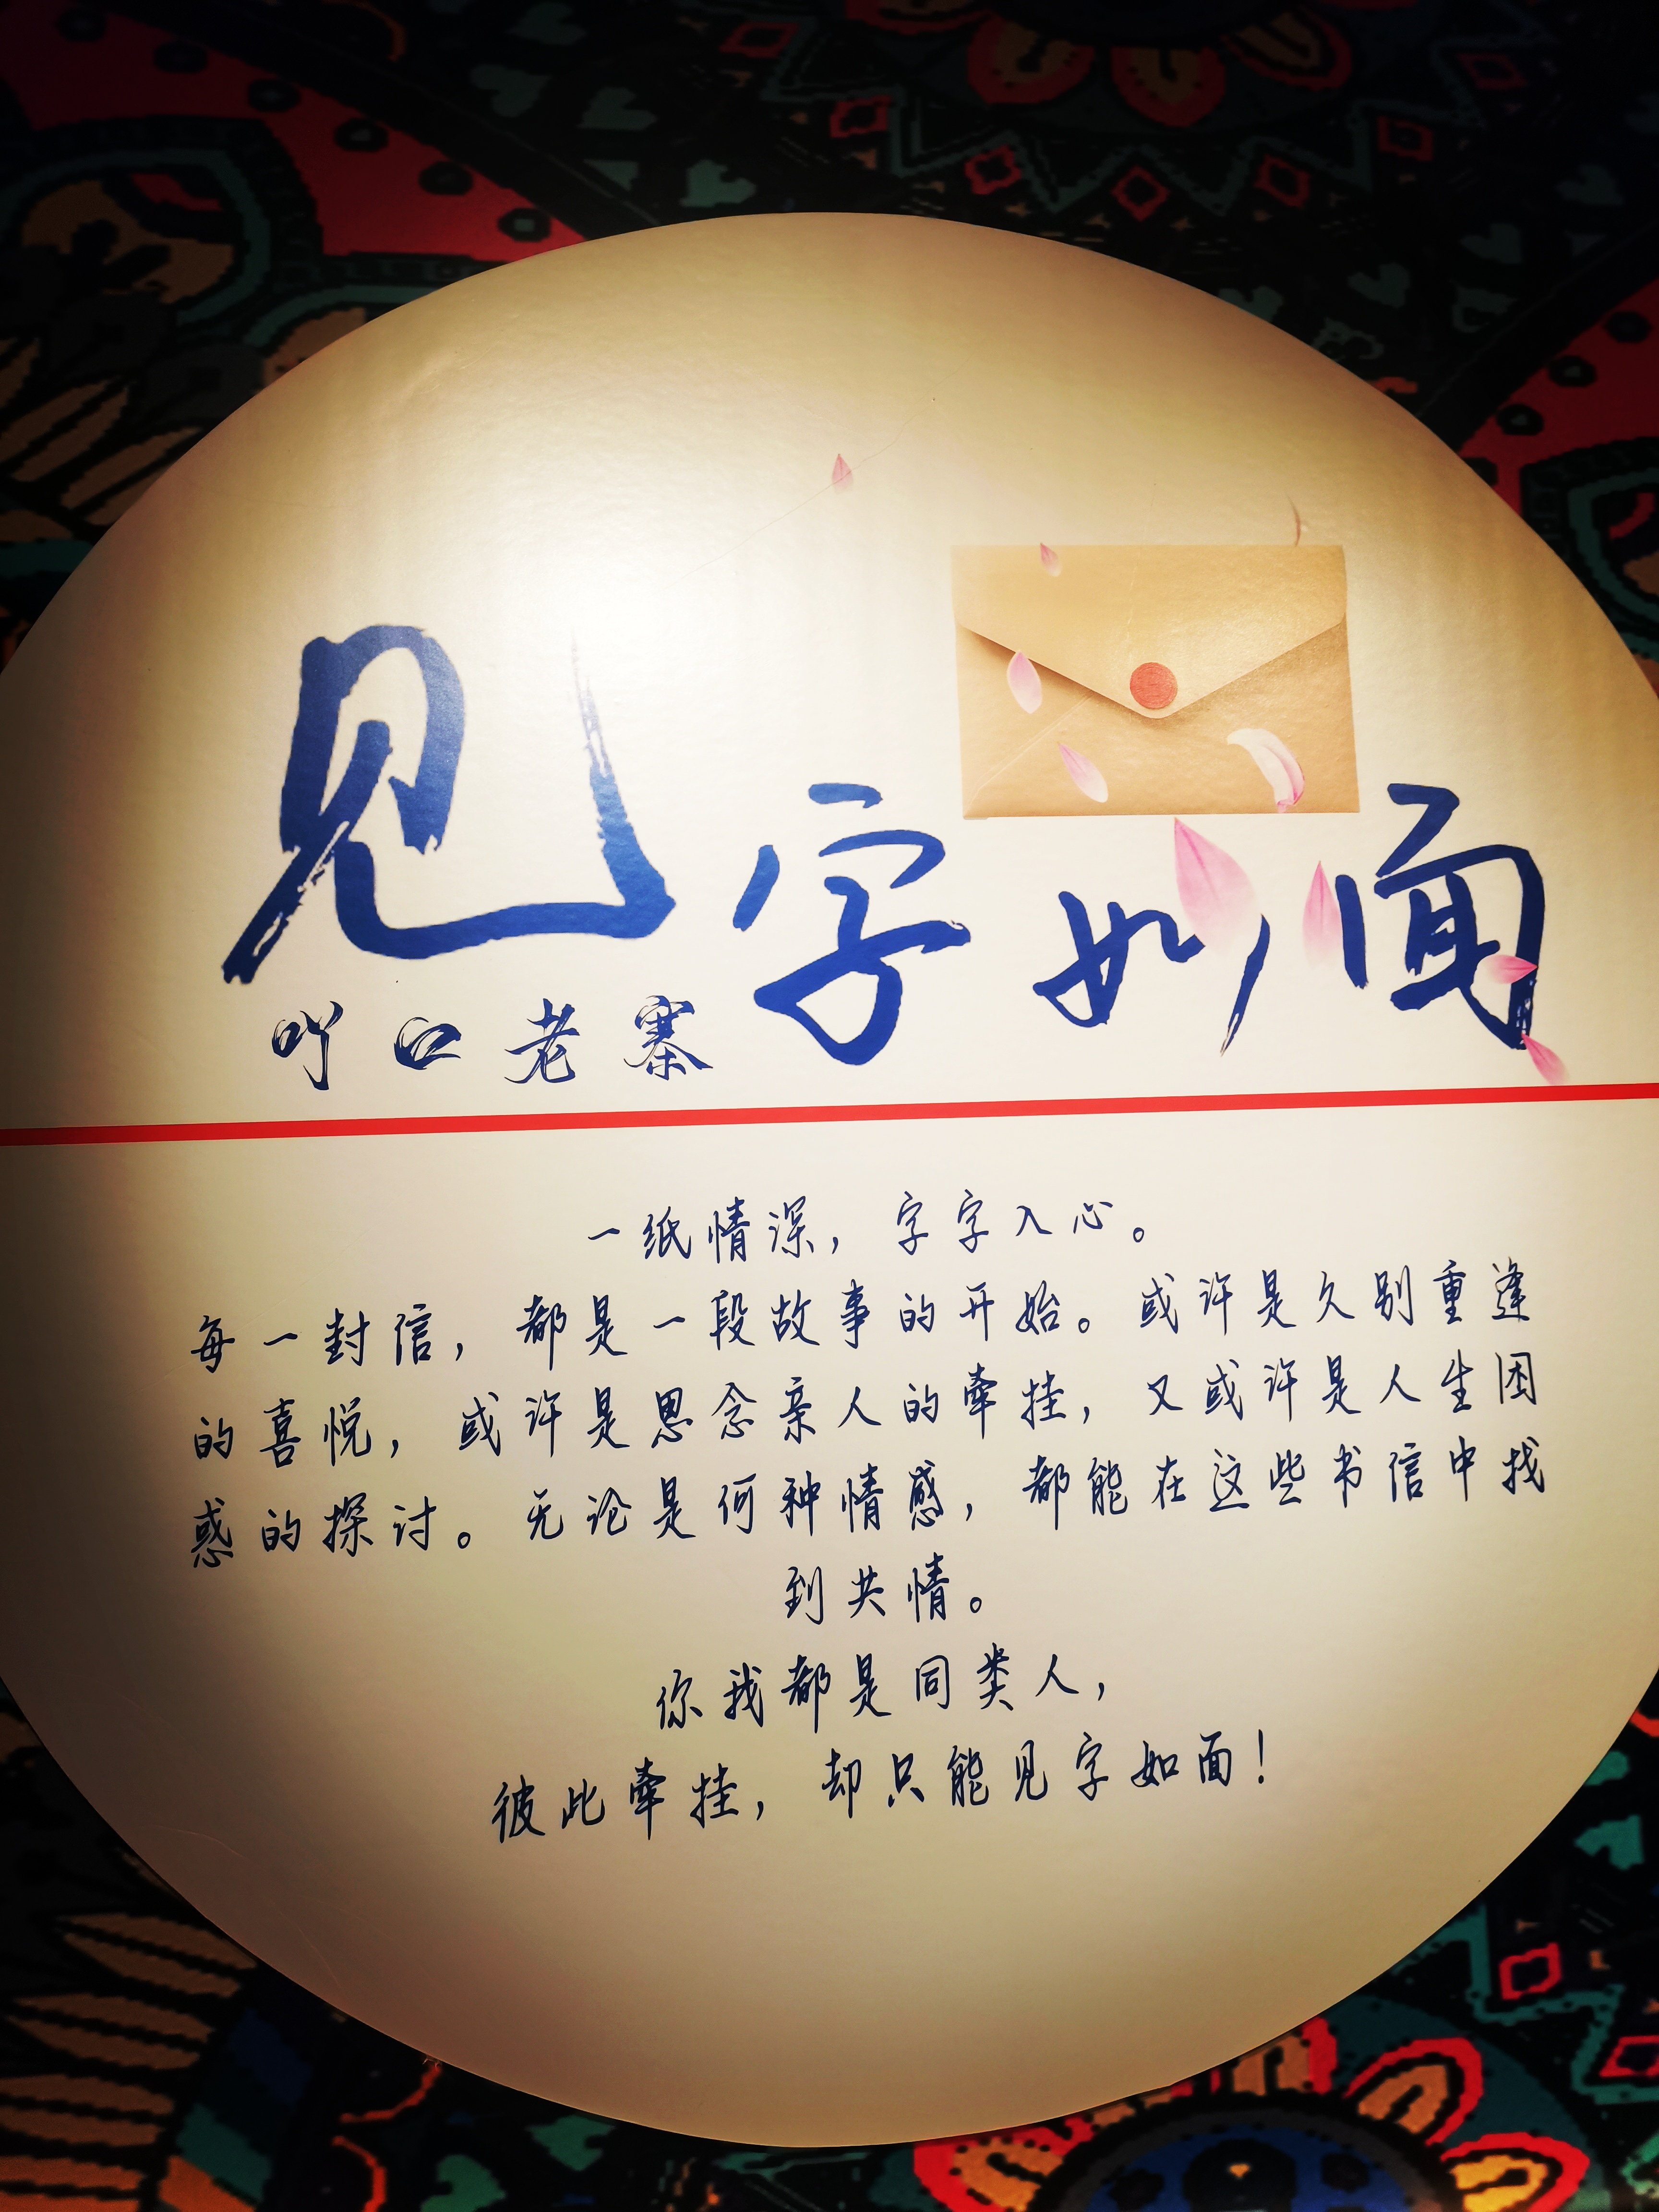 见字如面
吖口老寨
一纸情深，字字入心。
每一封信，都是一段故事的开始。或许是久别重逢
的喜悦，或许是思念亲人的牵挂，又或许是人生困
惑的探讨。无论是何种情感，都能在这些书信中找
到共情。
你我都是同类人，
彼此牵挂，却只能见字如面！